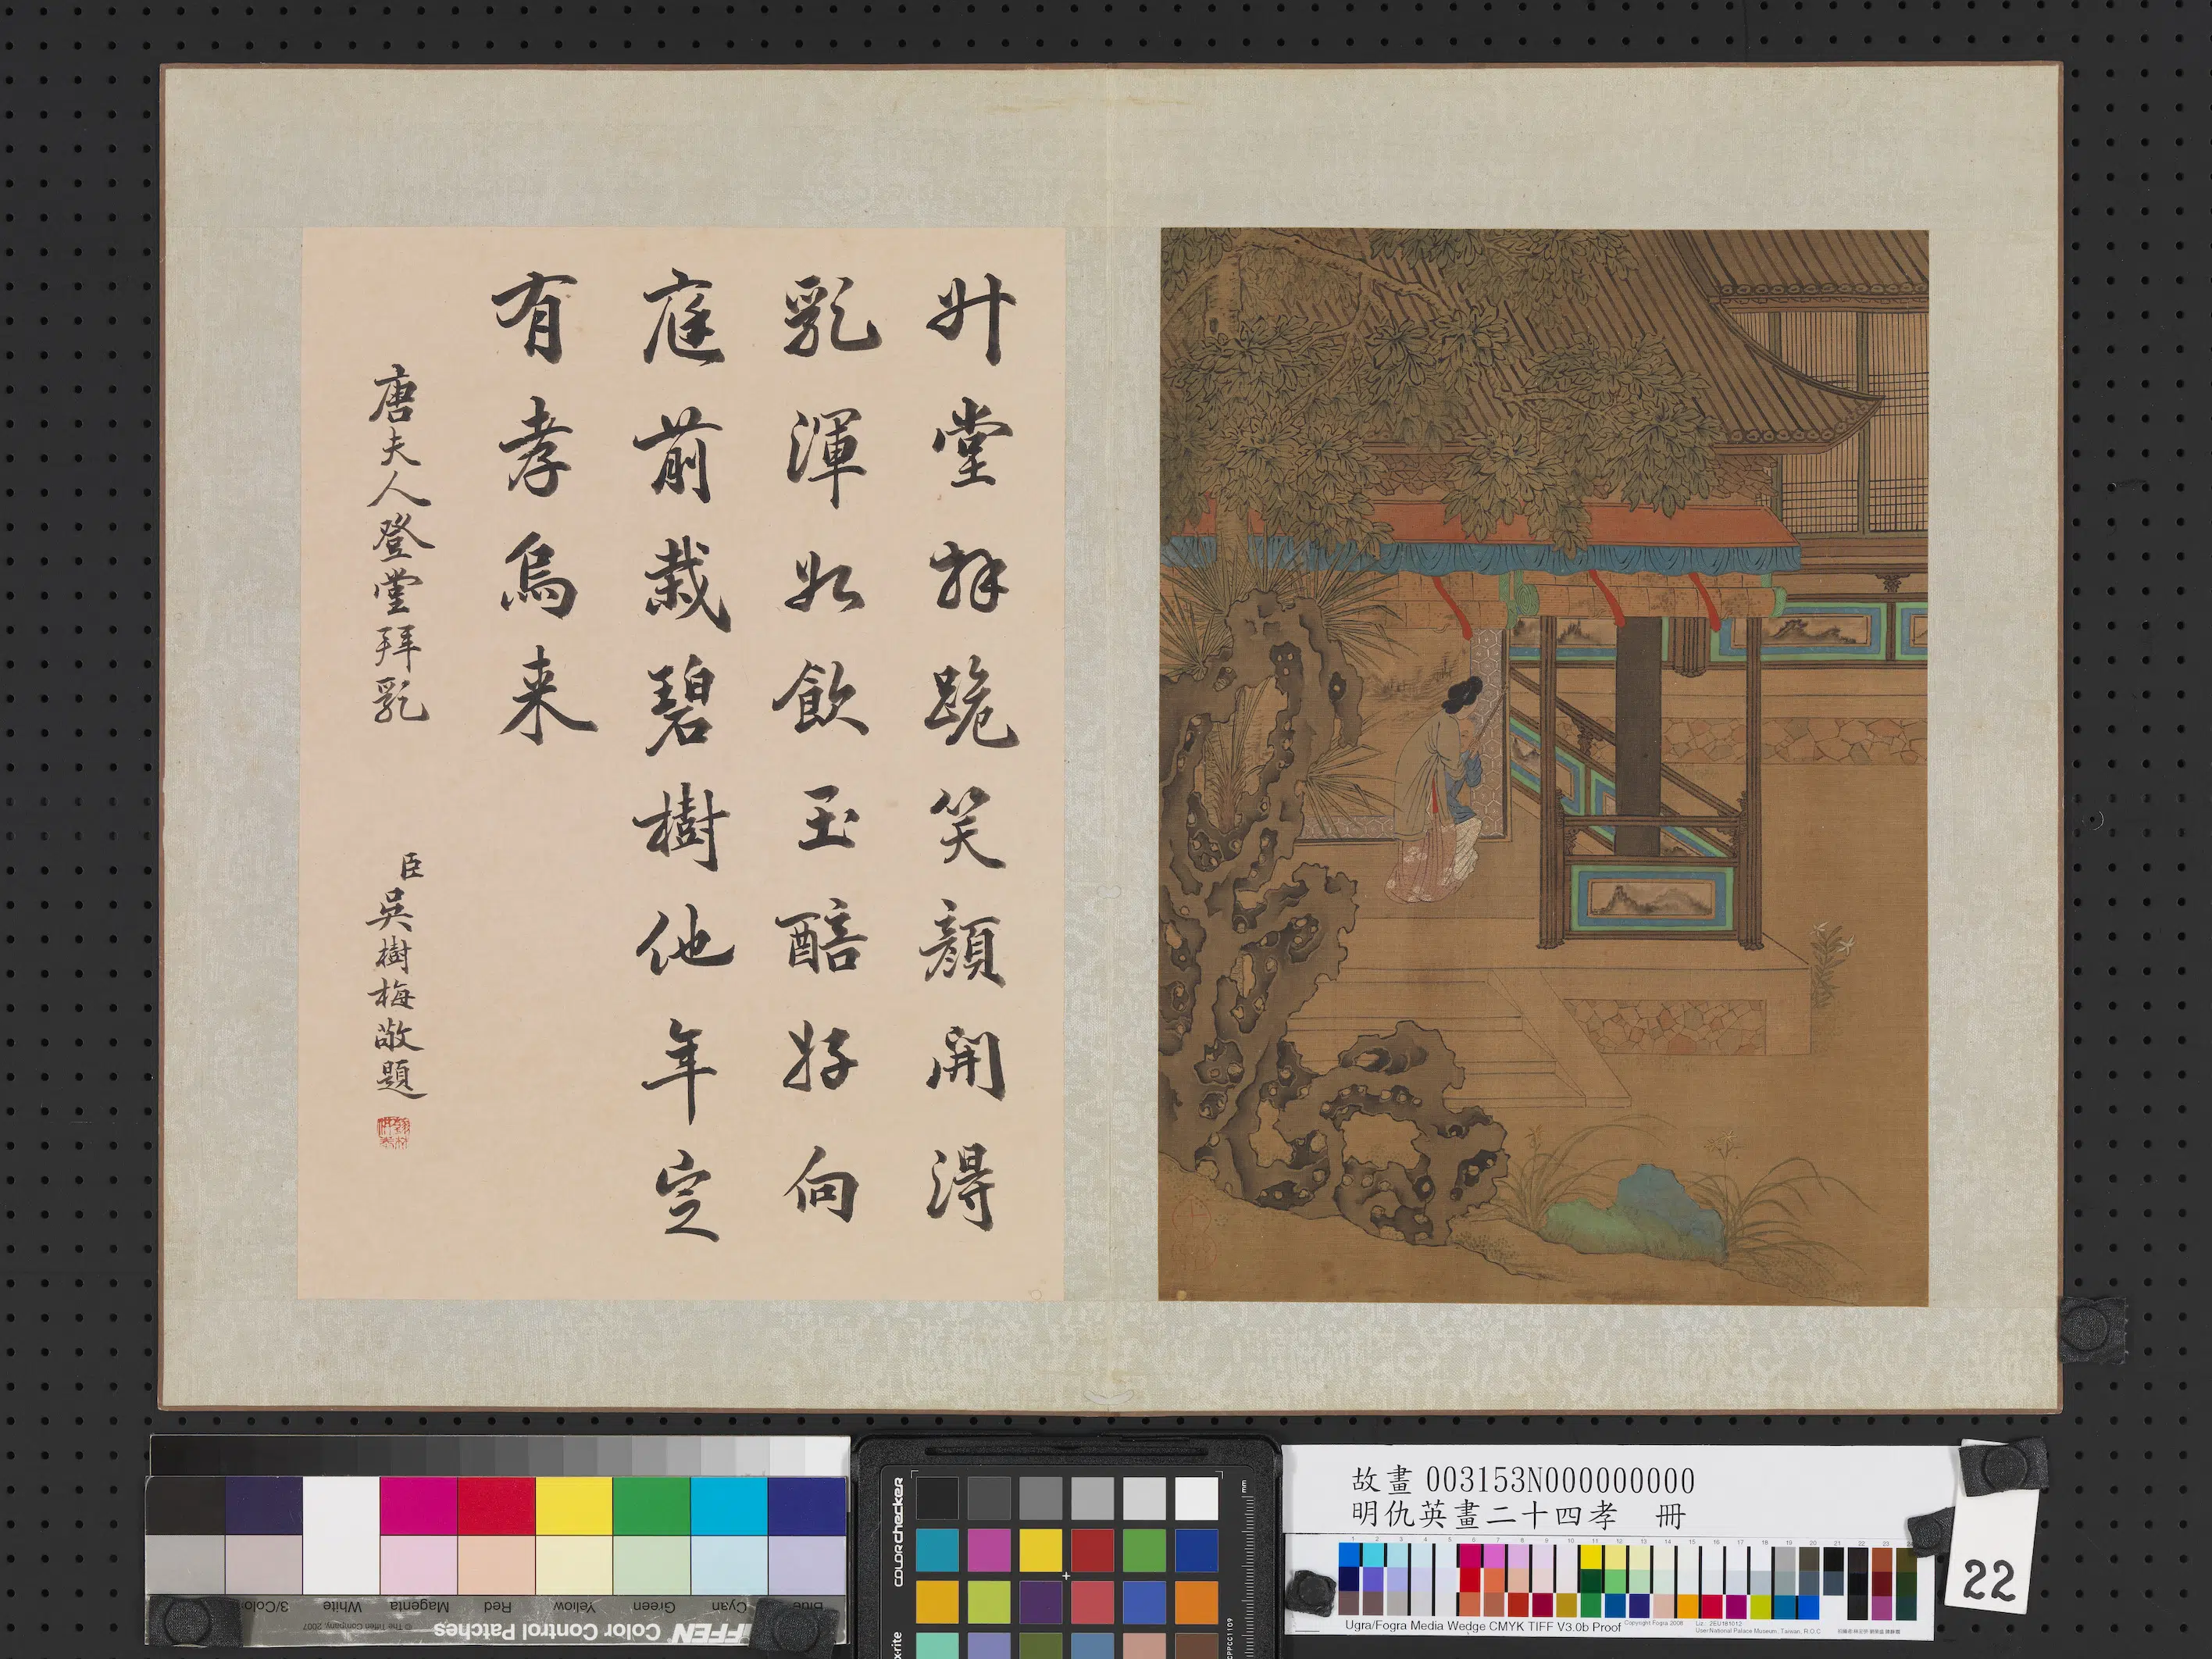 升堂拜跪笑顏開得
乳渾如飲玉醅好向
庭前栽碧樹他年定
有孝烏来
唐夫人登堂拜乳
臣吳樹梅敬題
故畫 003153N000000000
明仇英畫二十四孝 冊
22
3/Color
White
Magenta
Red
Yellow
Green
Cyan
© The Tiffen Company, 2007
Color Control Patches
colorchecker
x-rite
mm
Ugra/Fogra Media Wedge CMYK TIFF V3.0b Proof
Copyright Fogra 2008
User: National Palace Museum, Taiwan, R.O.C